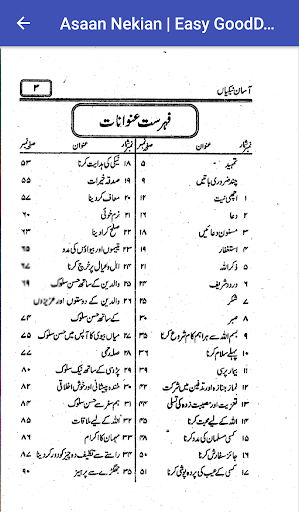 Asaan Nekian | Easy GoodD...
آسان نیکیاں
۳
فہرست عنوانات
نمبر شمار عنوان صفحہ نمبر
تمہید ۵
چند ضروری باتیں ۹
۱ اچھی نیت ۱۲
۲ دعا ۱۶
۳ مسنون دعائیں ۱۸
۴ استغفار ۱۹
۵ ذکر اللہ ۲۱
۶ درود شریف
۷ شکر ۲۷
۸ صبر
۹ بسم اللہ سے ہر اہم کام شروع کرنا ۳۵
۱۰ پہلے سلام کرنا ۳۷
۱۱ بیمار پرسی
۱۲ نماز جنازہ اور تدفین میں شرکت ۴۲
۱۳ تعزیت اور مصیبت زدہ کی تسلی
۱۴ اللہ کے لئے محبت کرنا
۱۵ کسی مسلمان کی مدد کرنا ۴۷
۱۶ جائز سفارش کرنا ۵۰
۱۷ کسی کے عیب کی پردہ پوشی کرنا ۵۱
نمبر شمار عنوان صفحہ نمبر
۱۸ نیکی کی ہدایت کرنا ۵۳
۱۹ صدقہ خیرات ۵۵
۲۰ معاف کر دینا ۵۷
۲۱ نرم خوئی ۶۰
۲۲ صلح کرا دینا ۶۳
۲۳ یتیموں اور بیواؤں کی مدد ۶۵
۲۴ اہل و عیال پر خرچ کرنا ۶۷
۲۵ والدین کے ساتھ حسن سلوک ۶۹
۲۶ والدین کے دوستوں اور عزیزوں
کے ساتھ حسن سلوک ۷۳
۲۷ میاں بیوی کا آپس میں حسن سلوک ۷۵
۲۸ صلہ رحمی ۷۷
۲۹ پڑسی کے ساتھ نیک سلوک ۸۰
۳۰ خندہ پیشانی اور خوش اخلاقی ۸۲
۳۱ ہم سفر سے حسن سلوک ۸۴
۳۲ اللہ کے لیے ملاقات ۸۵
۳۳ مہمان کا اکرام ۸۶
۳۴ راستے سے تکلیف دہ چیز کو دور کر دینا ۸۷
۳۵ جھگڑے سے پرہیز ۹۰